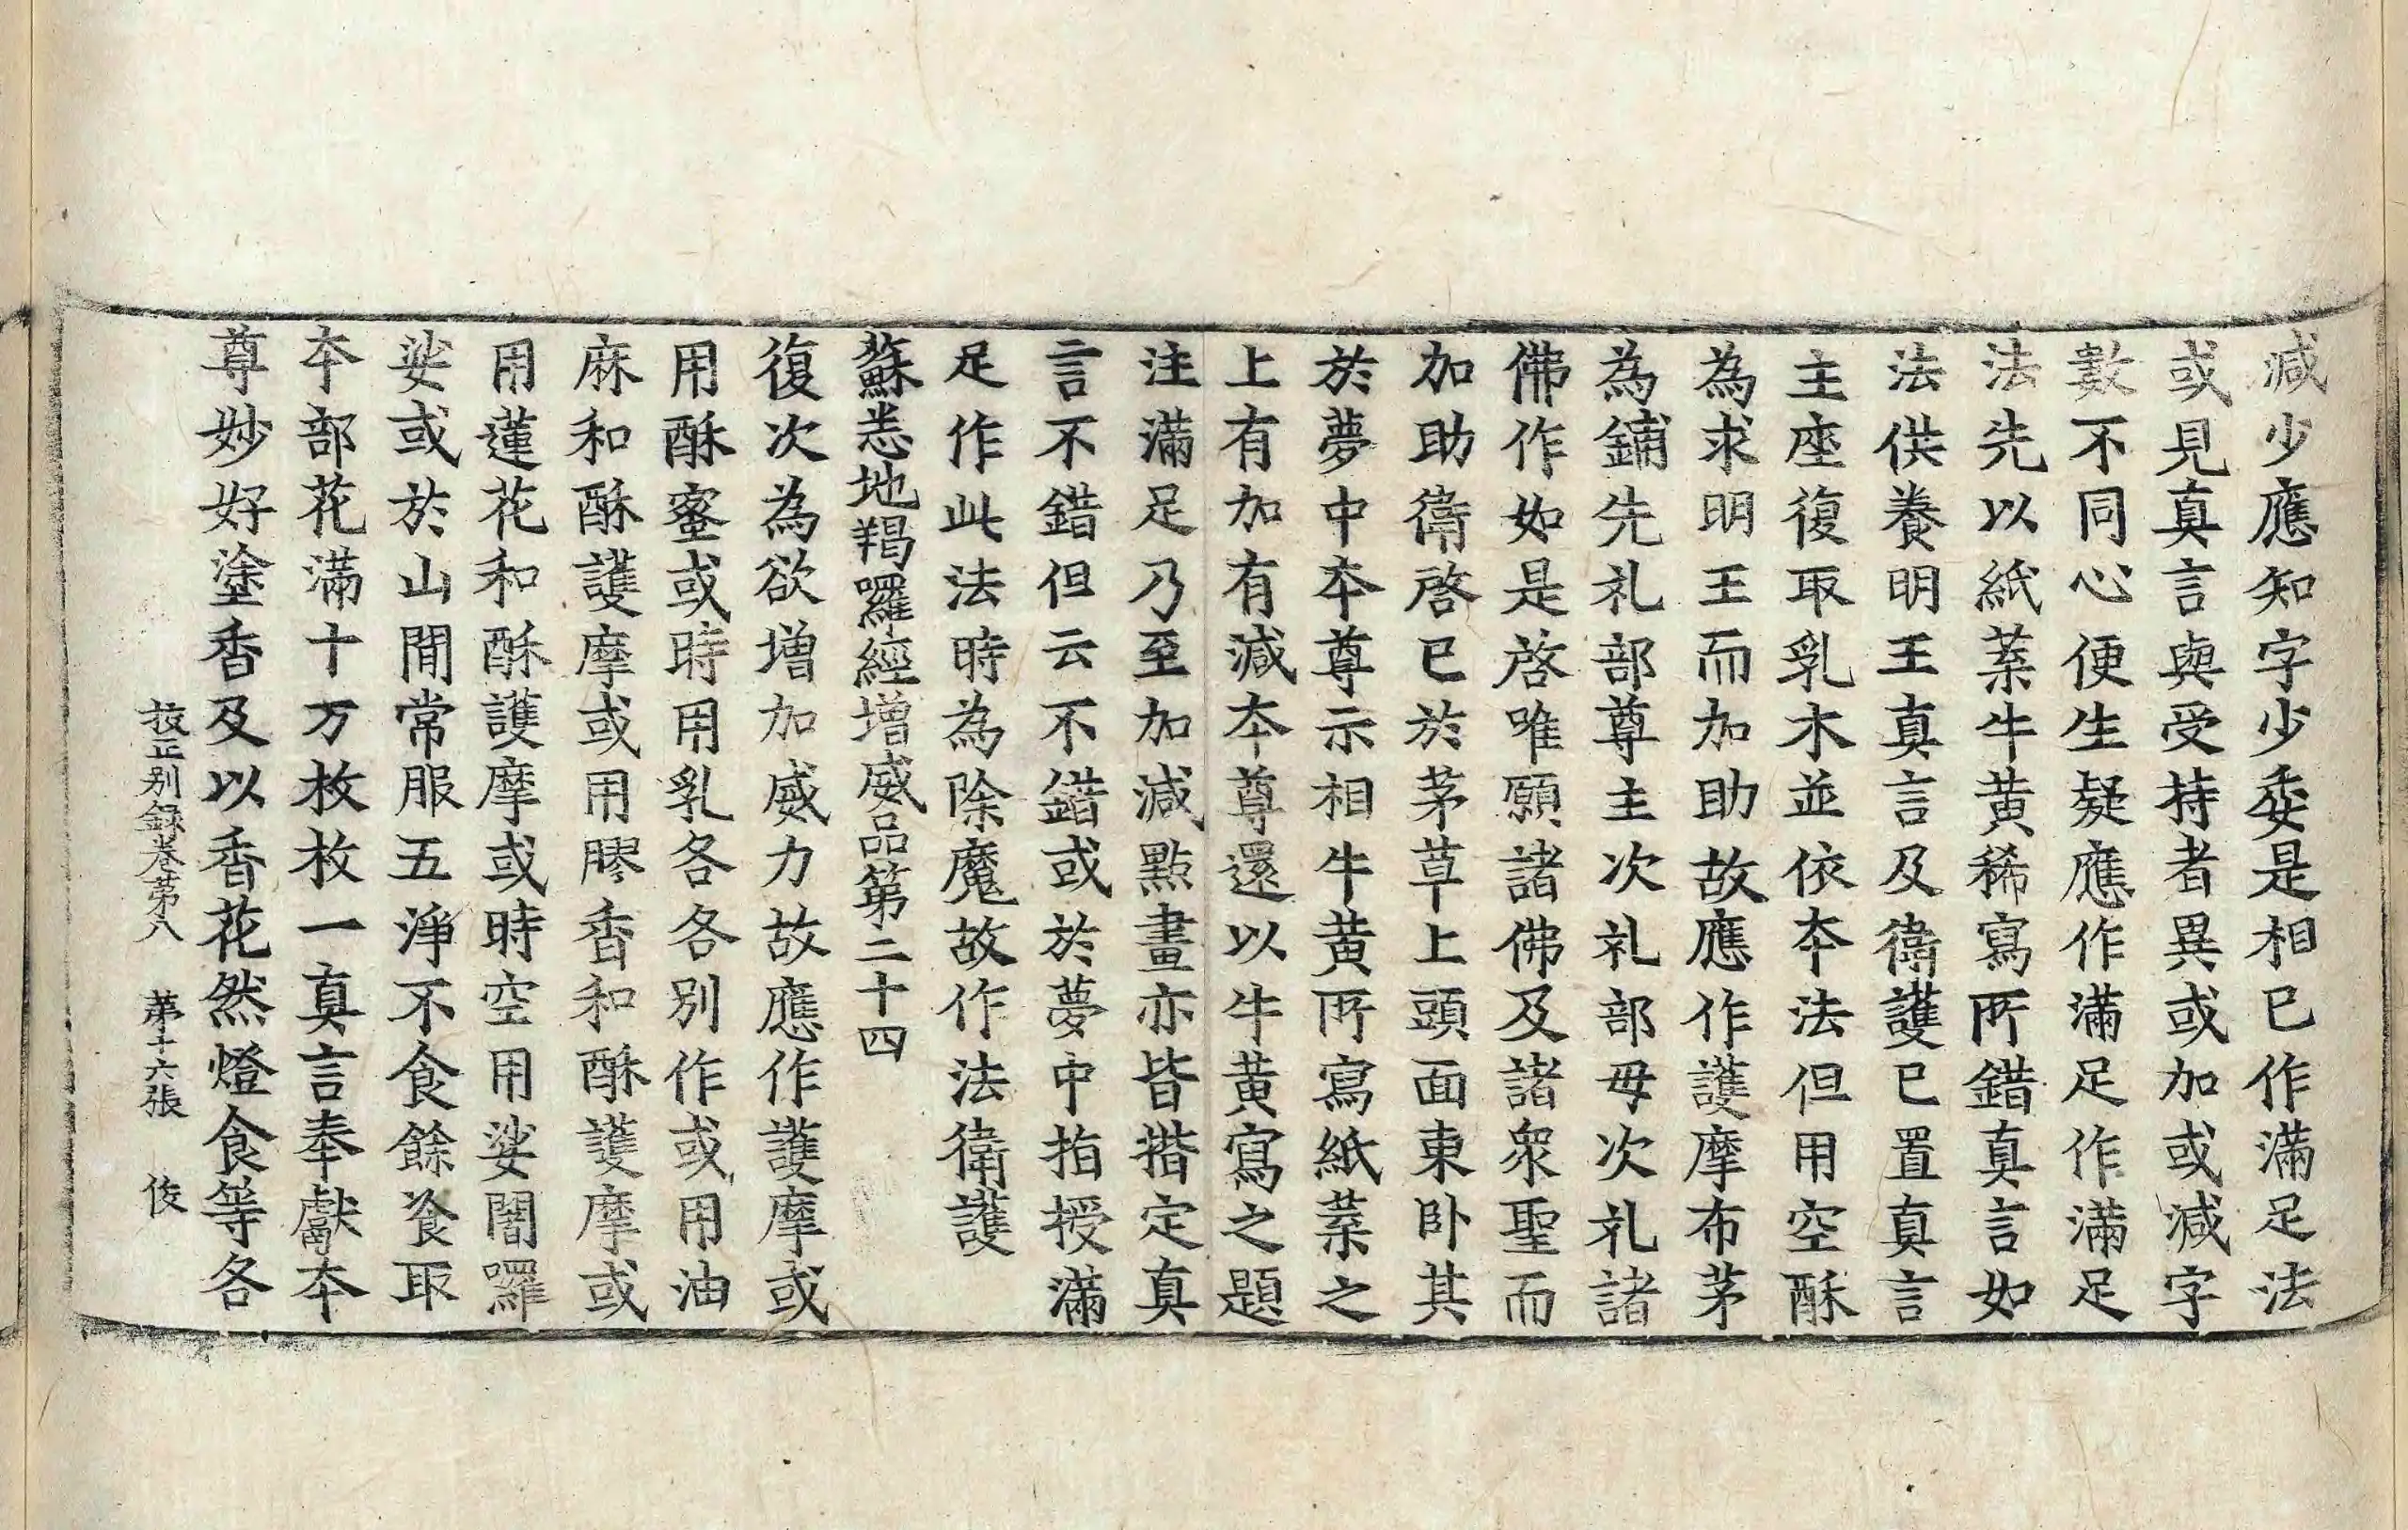 減少應知字少委是相已作滿足法
或見真言與受持者異或加或減字
數不同心便生疑應作滿足作滿足
法先以紙葉牛黄稀寫所錯真言如
法供養明王真言及衛護已置真言
主座復取乳木並依夲法但用空酥
為求明王而加助故應作護摩布茅
為鋪先礼部尊主次礼部母次礼諸
佛作如是啓唯願諸佛及諸衆聖而
加助衛啓已於茅草上頭面東卧其
於夢中夲尊示相牛黄所寫紙葉之
上有加有減夲尊還以牛黄寫之題
注滿足乃至加減點畫亦皆揩定真
言不錯但云不錯或於夢中指授滿
足作此法時為除魔故作法衛護
蘇悉地羯囉經增威品第二十四
復次為欲增加威力故應作護摩或
用酥蜜或時用乳各各別作或用油
麻和酥護摩或用膠香和酥護摩或
用蓮花和酥護摩或時空用娑闍囉
娑或於山間常服五淨不食餘飡取
夲部花滿十万枚枚一真言奉獻夲
尊妙好塗香及以香花然燈食等各
挍正别録卷第八　第十六張　俊